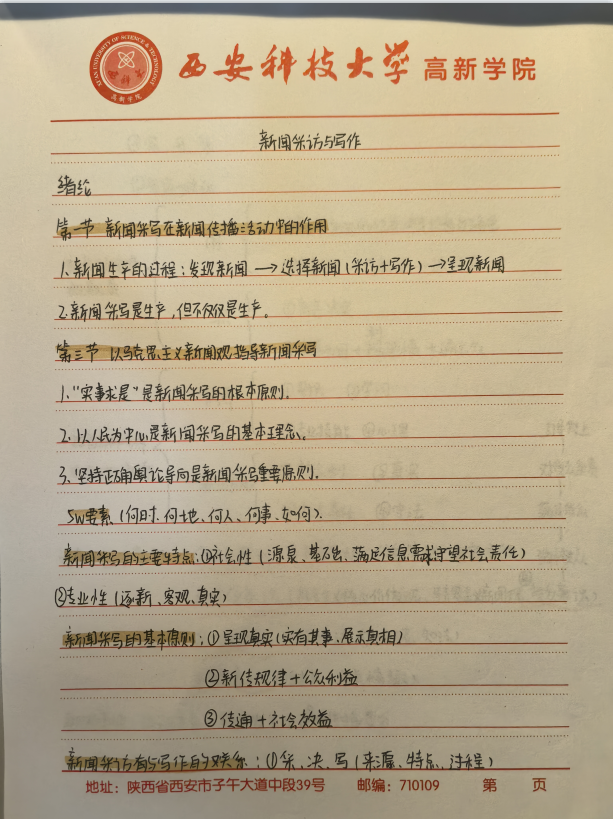 西安科技大学 高新学院
新闻采访与写作
绪论
第一节 新闻采写在新闻传播活动中的作用
1.新闻生产的过程:发现新闻→选择新闻(采访+写作)→呈现新闻
2.新闻采写是生产,但不仅仅是生产。
第三节 以马克思主义新闻观指导新闻采写
1.“实事求是”是新闻采写的根本原则。
2.以人民为中心是新闻采写的基本理念。
3.坚持正确舆论导向是新闻采写重要原则。
5W要素(何时、何地、何人、何事、如何)。
新闻采写的主要特点:①社会性(源泉、基础、满足信息需求守望社会责任)
②专业性(逐新、客观、真实)
新闻采写的基本原则:①呈现真实(实有其事、展示真相)
②新传规律+公众利益
③传通+社会效益
新闻采访与写作的关系:①采、决、写(来源、特点、过程)
地址:陕西省西安市子午大道中段39号 邮编:710109 第 页